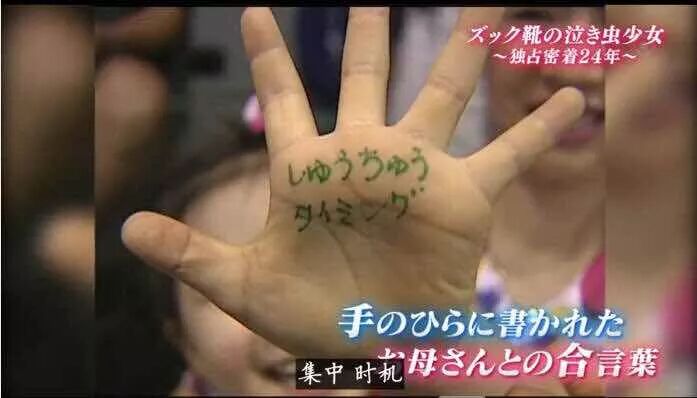 ズック靴の泣き虫少女
～独占密着24年～
しゅうちゅう
タイミング
手のひらに書かれた
お母さんとの合言葉
集中 时机